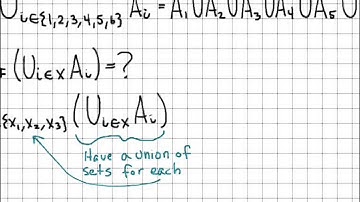 U_{i∈{1,2,3,4,5,6}} A_i = A_1 U A_2 U A_3 U A_4 U A_5 U
= (U_{i∈X} A_i) = ?
{X_1, X_2, X_3} (U_{i∈X} A_i)
Have a union of
sets for each